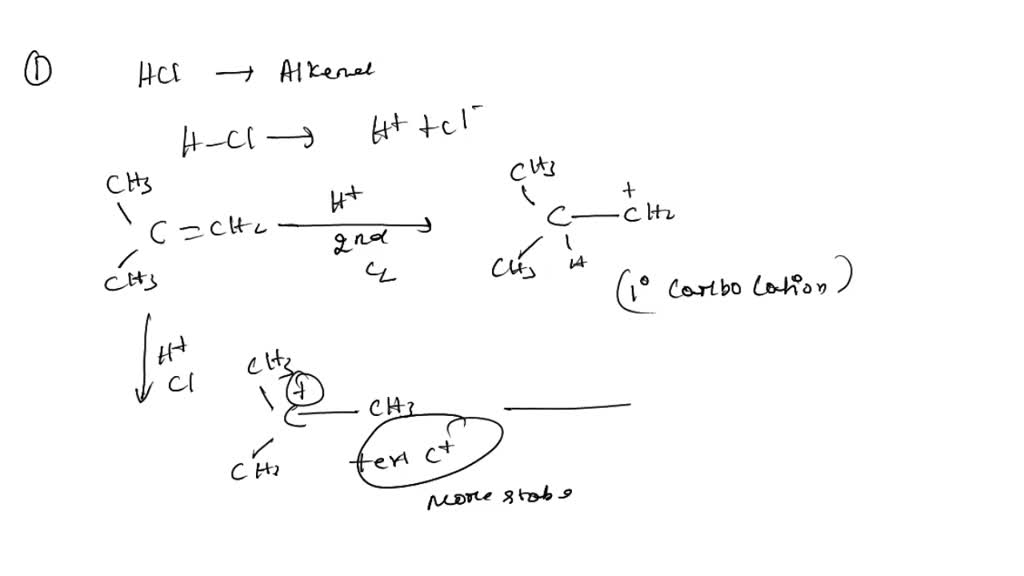 ① HCl → Alkenel
H-Cl → H⁺ + Cl⁻
CH₃
C=CH₂
CH₃
H⁺
2nd
C₂
CH₃
C—CH₂
+
CH₃ H
(1° Carbocation)
H⁺
Cl
CH₃
+
C—CH₃
CH₃
tert C⁺
More stabe